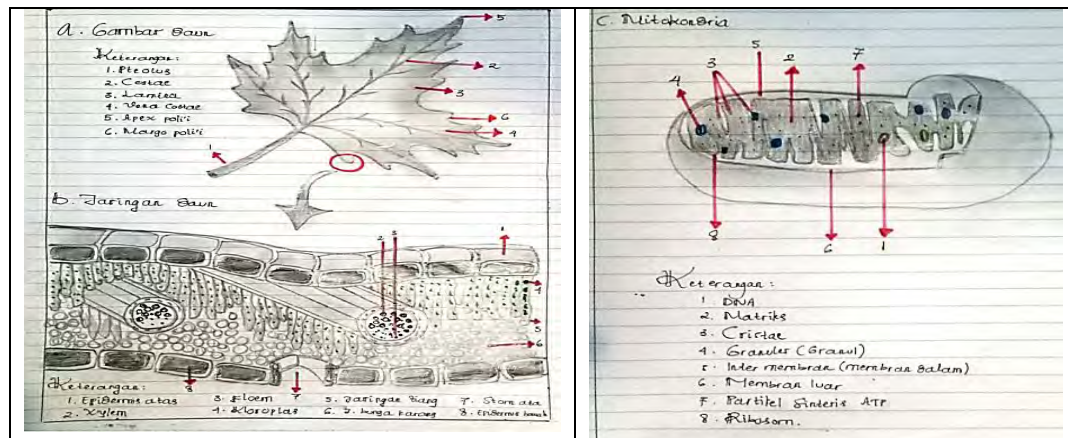 a. Gambar daun
Keterangan:
1. Pteolus
2. Costae
3. Lamina
4. Vena Costae
5. Apex poli'i
6. Margo poli'i
5
2
3
6
4
1
b. Jaringan daun
2 3 1
4
5
6
8 7
Keterangan:
1. Epidermis atas
2. Xylem
3. Floem
4. Kloroplas
5. Jaringan tiang
6. J. bunga karang
7. Stomata
8. Epidermis bawah
C. Mitokondria
4 3 5 2 7
8 6 1
Keterangan:
1. DNA
2. Matriks
3. Cristae
4. Granuler (Granul)
5. Inter membran (membran dalam)
6. Membran luar
7. Partikel Sintesis ATP
8. Ribosom.